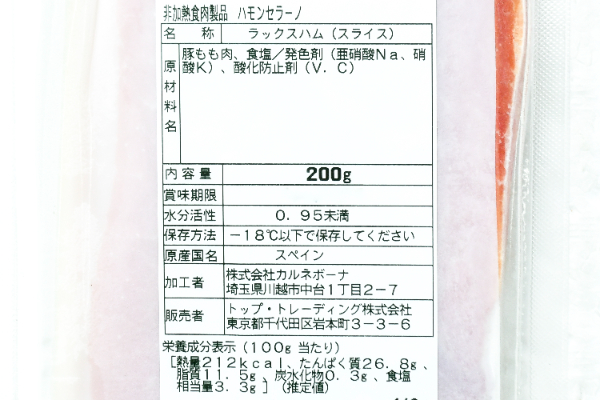 非加熱食肉製品　ハモンセラーノ
名　称　ラックスハム（スライス）
原材料名　豚もも肉、食塩／発色剤（亜硝酸Ｎａ、硝
酸Ｋ）、酸化防止剤（Ｖ．Ｃ）
内容量　200g
賞味期限
水分活性　０．９５未満
保存方法　－18℃以下で保存してください
原産国名　スペイン
加工者　株式会社カルネボーナ
埼玉県川越市中台１丁目２－７
販売者　トップ・トレーディング株式会社
東京都千代田区岩本町３－３－６
栄養成分表示（１００g 当たり）
［熱量２１２ｋｃａｌ、たんぱく質２６．８g、
脂質１１．５g、炭水化物０．３g、食塩
相当量３．３g］（推定値）